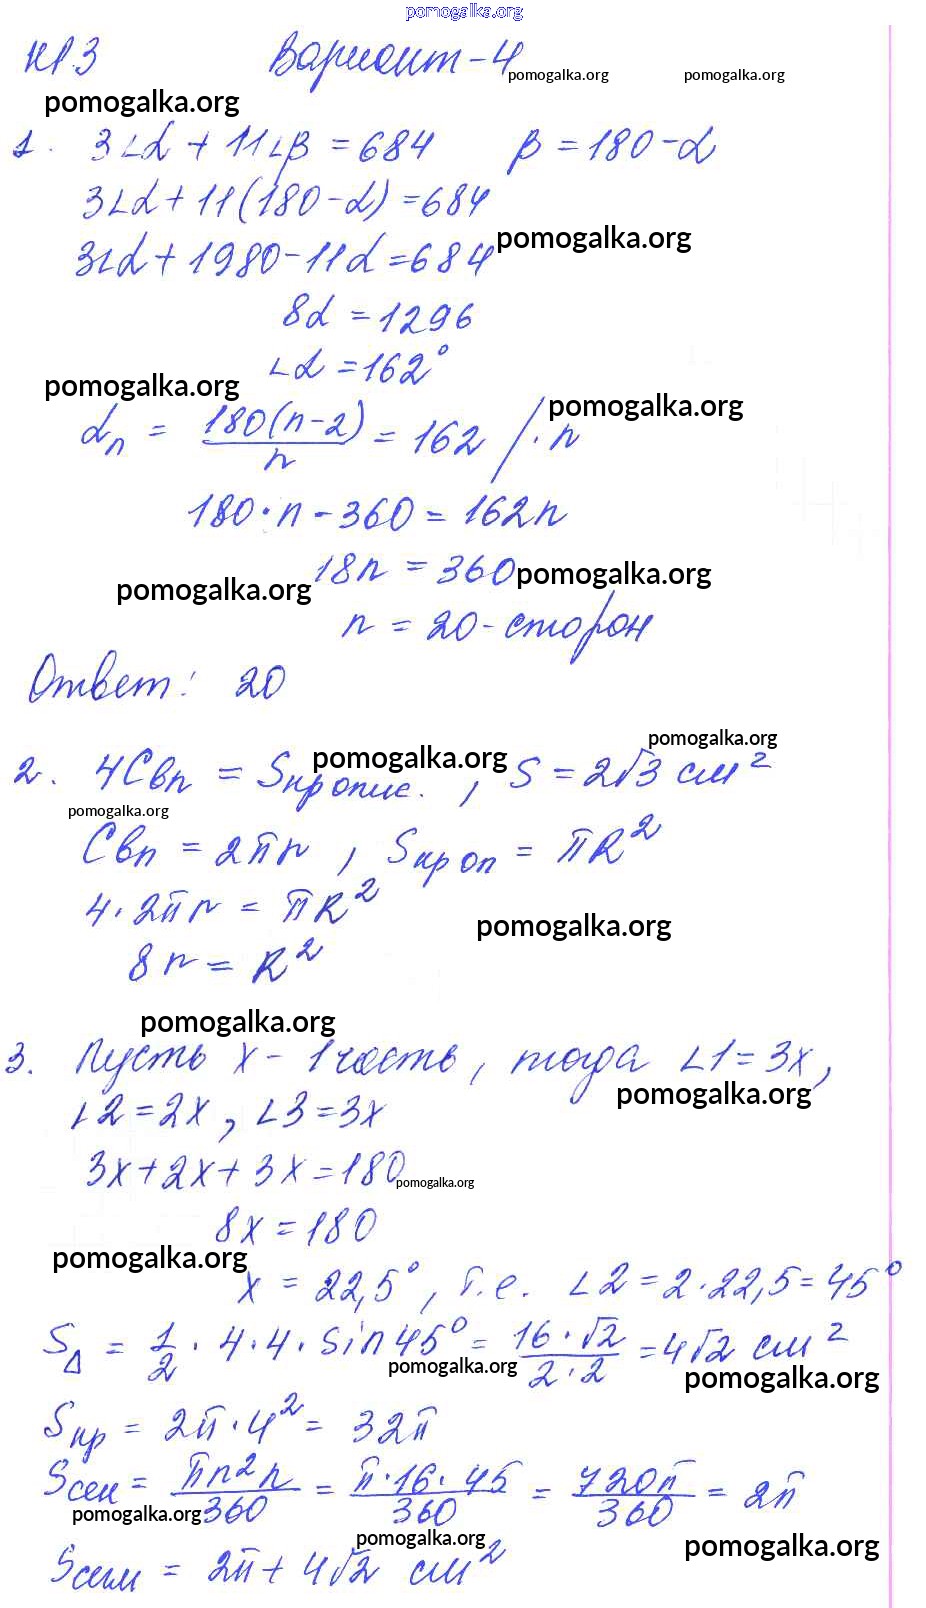 pomogalka.org
КР.3 Вариант-4
pomogalka.org pomogalka.org
pomogalka.org
1. 3∠α + 11∠β = 684 β = 180-α
3∠α + 11(180-α) = 684
pomogalka.org
3∠α + 1980-11α = 684
8α = 1296
∠α = 162°
pomogalka.org pomogalka.org
αₙ = 180(n-2)/n = 162 /·n
180·n - 360 = 162n
18n = 360
pomogalka.org pomogalka.org
n = 20-сторон
Ответ: 20
pomogalka.org pomogalka.org
2. 4Cвп = Sкр опис., S = 2√3 см²
pomogalka.org
Cвп = 2πr, Sкр оп = πR²
4·2πr = πR²
pomogalka.org
8r = R²
pomogalka.org
3. Пусть x - 1 часть, тогда ∠1=3x,
pomogalka.org
∠2=2x, ∠3=3x
3x+2x+3x=180
pomogalka.org
8x=180
pomogalka.org
x = 22,5°, т.е. ∠2=2·22,5=45°
S∆ = 1/2 · 4·4·sin45° = 16·√2/2·2 = 4√2 см²
pomogalka.org pomogalka.org
Sкр = 2π·4² = 32π
Sсек = πn²n/360 = π·16·45/360 = 720π/360 = 2π
pomogalka.org
pomogalka.org pomogalka.org
Sсегм = 2π + 4√2 см²